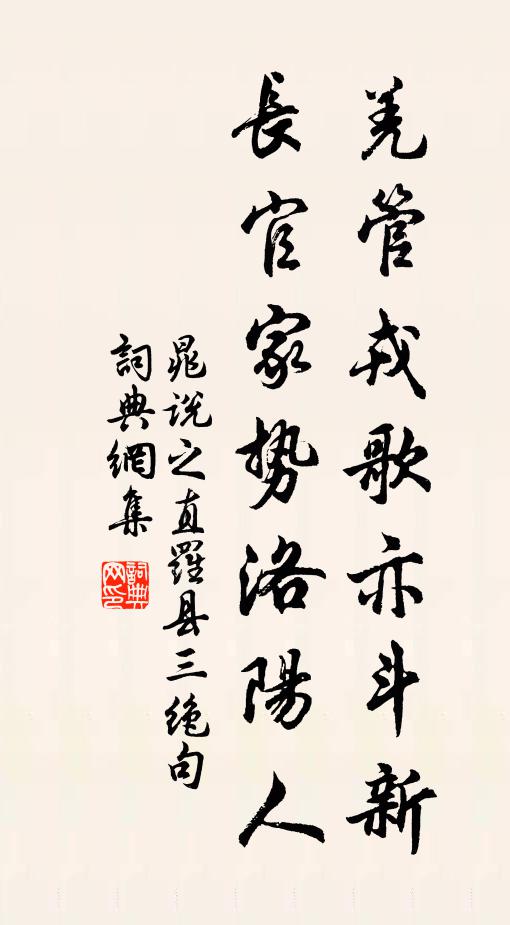 羌管戎歌亦斗新
長官家勢洛陽人
晁说之直羅县三绝句
詞典網集
詞典网印